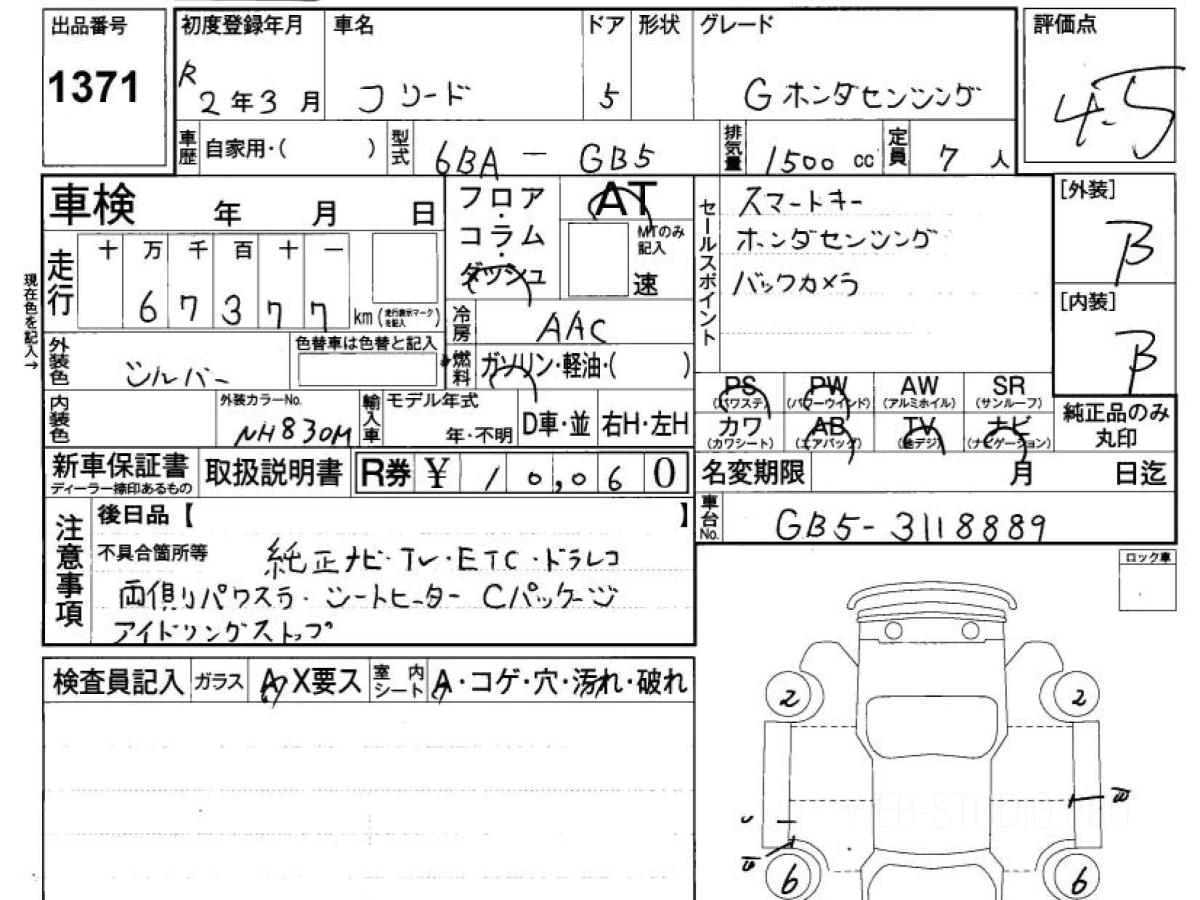 出品番号
1371
初度登録年月
R2年3月
車名
フリード
ドア
5
形状
グレード
G ホンダセンシング
評価点
4.5
車歴
自家用・( )
型式
6BA - GB5
排気量
1500 cc
定員
7人
車検 年 月 日
走行
十 万 千 百 十 一
6 7 3 7 7 km
(走行表示マークを記入)
現在色を記入→
フロア・コラム・ダッシュ
AT
MTのみ記入
速
セールスポイント
スマートキー
ホンダセンシング
バックカメラ
[外装]
B
[内装]
B
外装色
シルバー
色替車は色替と記入
冷房
AAC
燃料
ガソリン・軽油・( )
内装色
外装カラーNo.
NH830M
輸入車
モデル年式
年・不明
D車・並
右H・左H
PS
(パワステ)
PW
(パワーウインド)
AW
(アルミホイル)
SR
(サンルーフ)
カワ
(カワシート)
AB
(エアバッグ)
TV
(地デジ)
ナビ
(ナビゲーション)
純正品のみ
丸印
新車保証書
ディーラー捺印あるもの
取扱説明書
R券 ¥ 10,060
名変期限 月 日迄
車台No.
GB5-3118889
注意事項
後日品【 】
不具合箇所等
純正ナビ・TV・ETC・ドラレコ
両側パワスラ・シートヒーター Cパッケージ
アイドリングストップ
ロック車
検査員記入
ガラス
A・X要ス
室内シート
A・コゲ・穴・汚れ・破れ
2
2
6
6
WEB-STUDIO.PRO